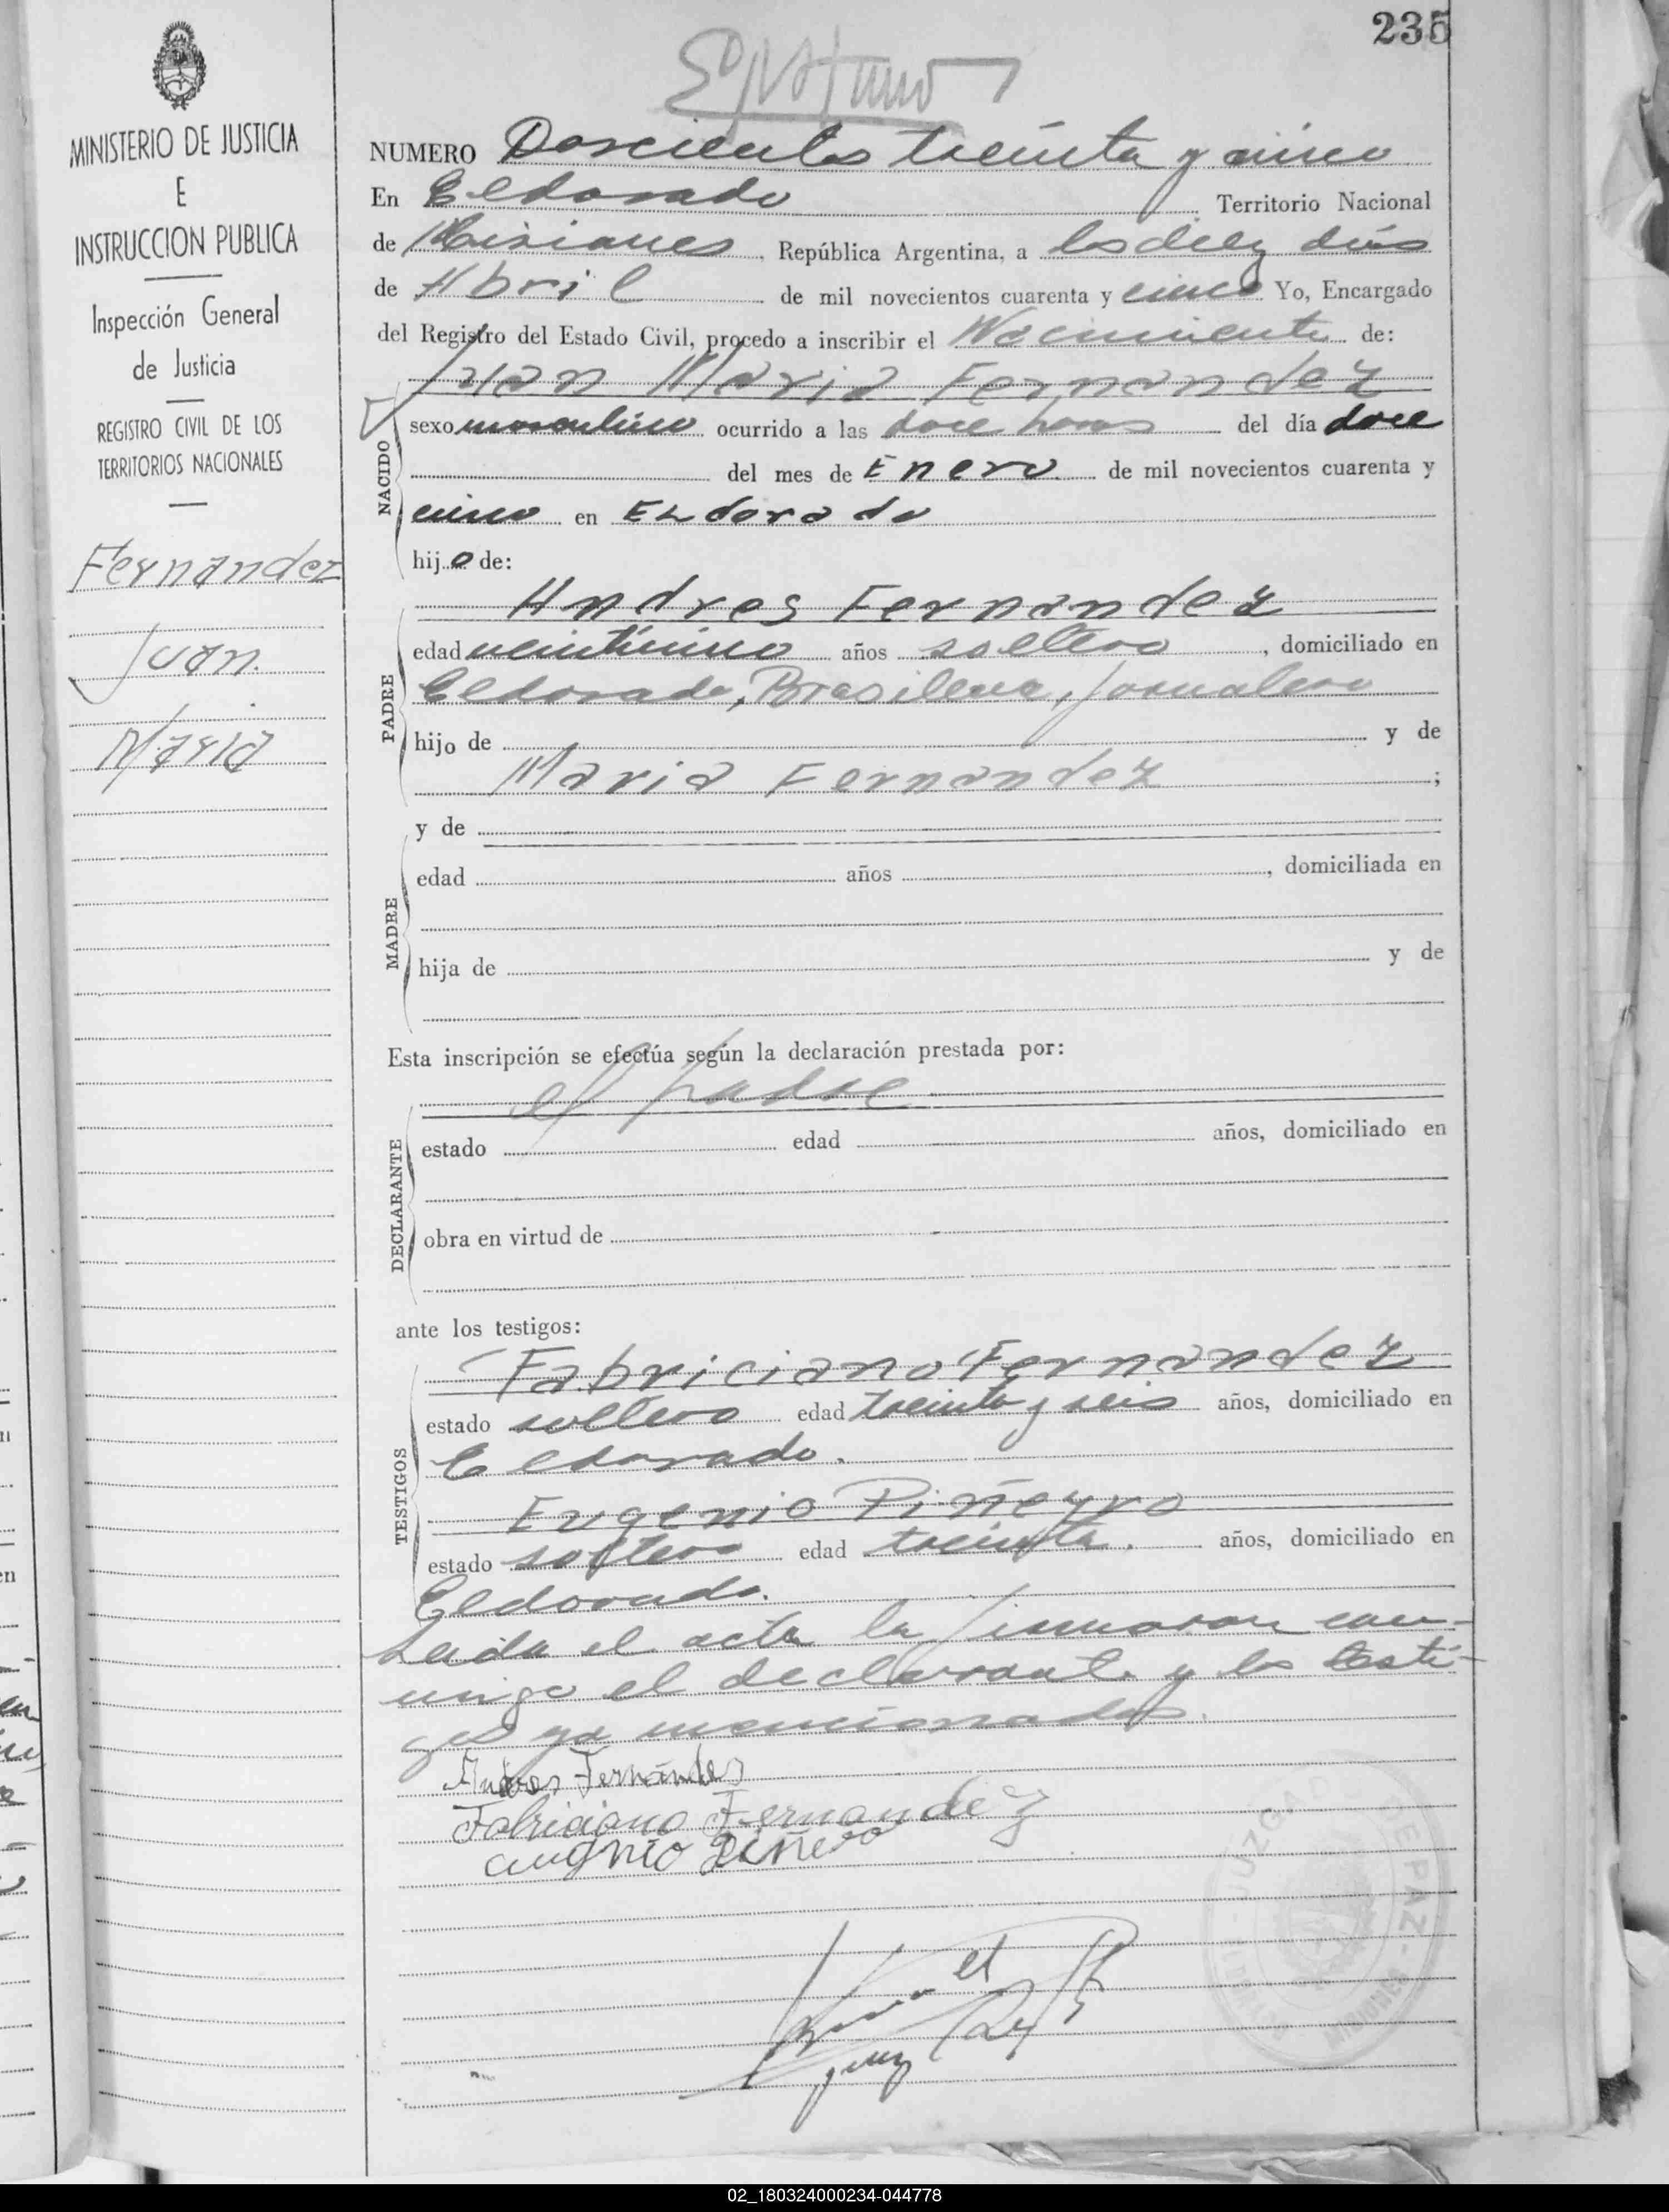 235
MINISTERIO DE JUSTICIA
E
INSTRUCCION PUBLICA
Inspección General
de Justicia
REGISTRO CIVIL DE LOS
TERRITORIOS NACIONALES
Fernandez
Juan
Maria
NUMERO Doscientos treinta y cinco
En Eldorado Territorio Nacional
de Misiones, República Argentina, a los diez dias
de Abril de mil novecientos cuarenta y cinco Yo, Encargado
del Registro del Estado Civil, procedo a inscribir el Nacimiento de:
Juan Maria Fernandez
NACIDO
sexo masculino ocurrido a las doce horas del día doce
del mes de Enero de mil novecientos cuarenta y
cinco en Eldorado
hijo de:
Andres Fernandez
PADRE
edad veinticinco años soltero, domiciliado en
Eldorado, Brasilero, Jornalero
hijo de y de
Maria Fernandez;
y de
MADRE
edad años, domiciliada en
hija de y de
Esta inscripción se efectúa según la declaración prestada por:
el padre
DECLARANTE
estado edad años, domiciliado en
obra en virtud de
ante los testigos:
Fabriciano Fernandez
TESTIGOS
estado soltero edad treinta y seis años, domiciliado en
Eldorado.
Eugenio Piñeyro
estado soltero edad treinta. años, domiciliado en
Eldorado.
Leida el acta la firmaron con-
migo el declarante y los testi-
gos ya mencionados.
Andres Fernández
Fabriciano Fernandez
Juez
JUZGADO DE PAZ
MISIONES
02_180324000234-044778